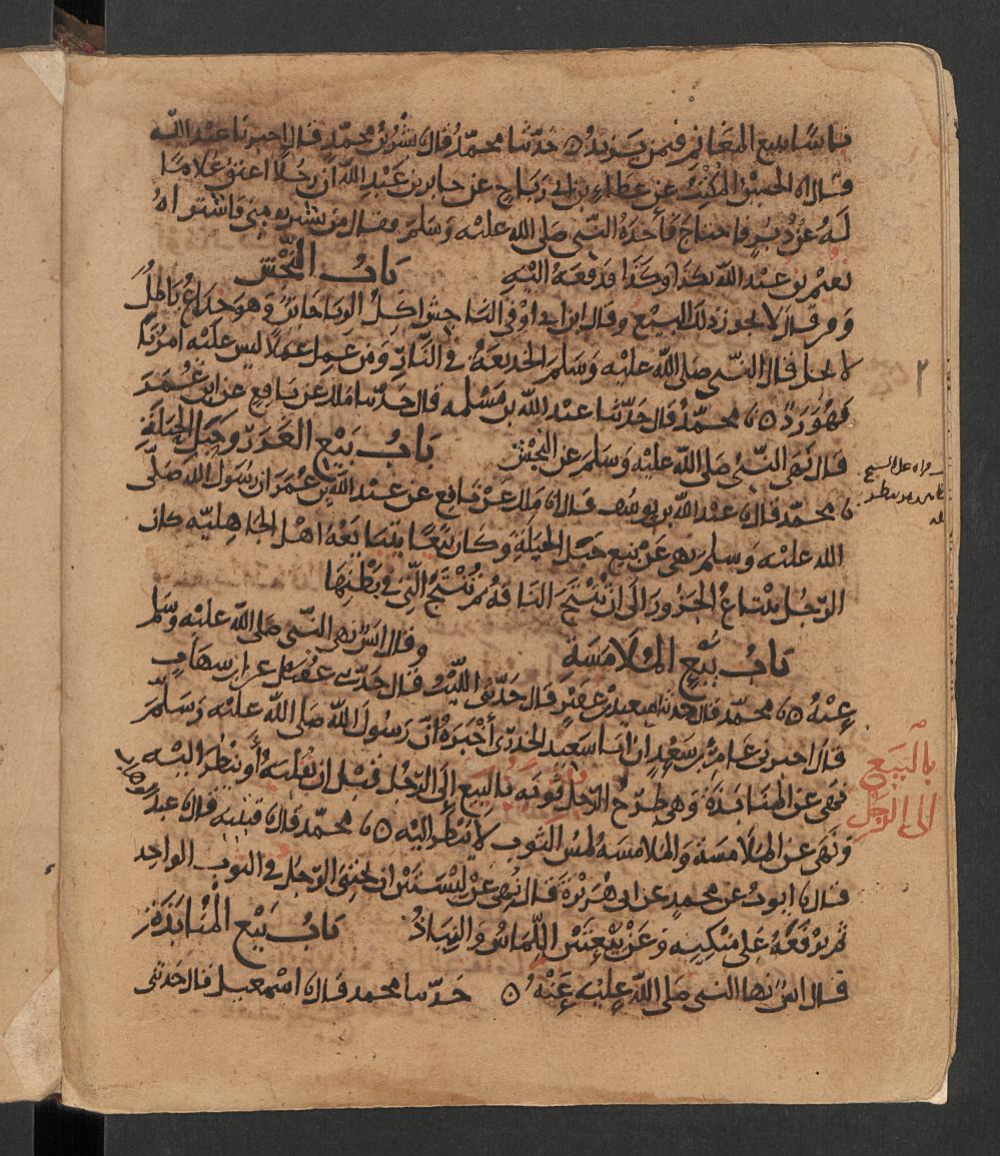 باسا ببيع المغانم فيمن يزيد ۝ حدثنا محمد قال نا بشر بن محمد قال اخبرنا عبد الله
قال انا الحسين المكتب عن عطاء بن ابي رباح عن جابر بن عبد الله ان رجلا اعتق غلاما
له عن دبر فاحتاج فأخذه النبي صلى الله عليه وسلم فقال من يشتريه مني فاشتراه
نعيم بن عبد الله بكذا وكذا فدفعه اليه باب النجش
ومن قال لا يجوز ذلك البيع وقال ابن ابي اوفى الناجش اكل الربا خائن وهو خداع باطل
لا يحل قال النبي صلى الله عليه وسلم الخديعة في النار ومن عمل عملا ليس عليه امرنا
فهو رد ۝ نا محمد قال حدثنا عبد الله بن مسلمه قال حدثنا ملك عن نافع عن ابن عمر
قال نهى النبي صلى الله عليه وسلم عن النجش باب بيع الغرر وحبل الحبلة
نا محمد قال نا عبد الله بن يوسف قال انا ملك عن نافع عن عبد الله بن عمر ان رسول الله صلى
الله عليه وسلم نهى عن بيع حبل الحبلة وكان بيعا يتبايعه اهل الجاهلية كان
الرجل يبتاع الجزور الى ان تنتج الناقة ثم تنتج التي في بطنها
باب بيع الملامسة وقال انس نهى النبي صلى الله عليه وسلم
عنه ۝ نا محمد قال حدثنا سعيد بن عفير قال حدثني الليث قال حدثني عقيل عن ابن شهاب
قال اخبرني عامر بن سعد ان ابا سعيد الخدري أخبره ان رسول الله صلى الله عليه وسلم
نهى عن المنابذة وهي طرح الرجل ثوبه بالبيع الى الرجل قبل ان يقلبه أو ينظر اليه
ونهى عن الملامسة والملامسة لمس الثوب لا ينظر اليه ۝ نا محمد قال نا قتيبه قال نا عبد الوهاب
قال نا ايوب عن محمد عن ابي هريرة قال نهي عن لبستين ان يحتبي الرجل في الثوب الواحد
ثم يرفعه على منكبه وعن بيعتين اللماس والنباذ باب بيع المنابذة
قال انس نها النبي صلى الله عليه عنه ۝ حدثنا محمد قال نا اسمعيل قال حدثني
بالبيع
الى الرجل